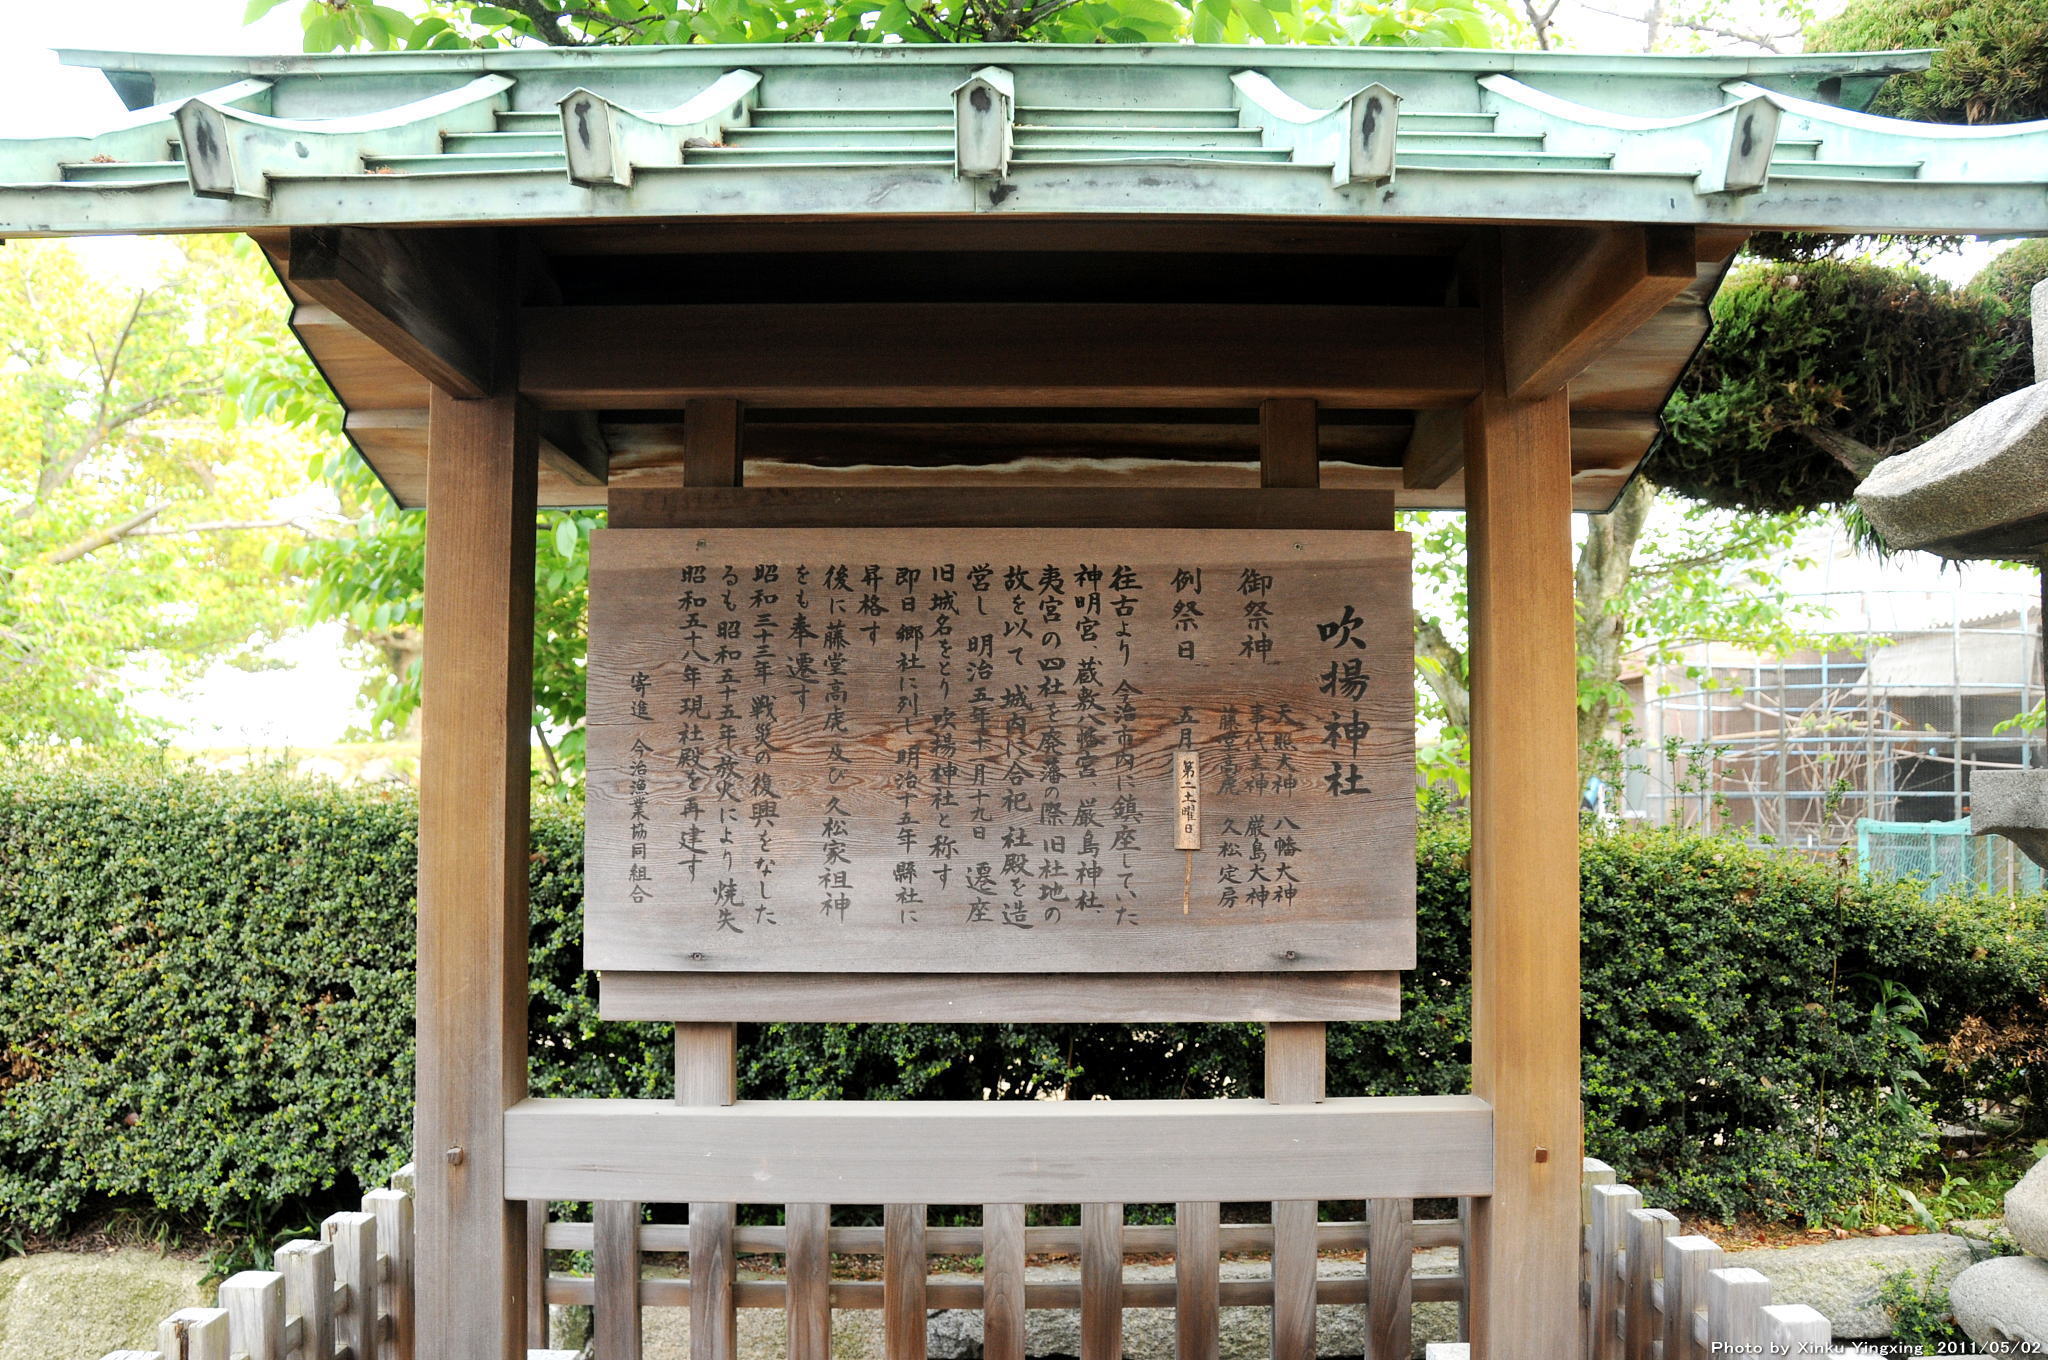 吹揚神社
御祭神
天照大神 八幡大神
事代主神 厳島大神
藤堂高虎 久松定房
例祭日 五月 第二土曜日
往古より 今治市内に鎮座していた
神明宮、蔵敷八幡宮、厳島神社、
夷宮の四社を廃藩の際 旧社地の
故を以て 城内に合祀 社殿を造
営し 明治五年十一月十九日 遷座
旧城名をとり 吹揚神社と称す
即日 郷社に列し 明治十五年 縣社に
昇格す
後に藤堂高虎 及び 久松家祖神
をも奉遷す
昭和三十三年 戦災の復興をなした
るも昭和五十五年放火により 焼失
昭和五十八年現社殿を再建す
寄進 今治漁業協同組合
Photo by Xinku Yingxing 2011/05/02